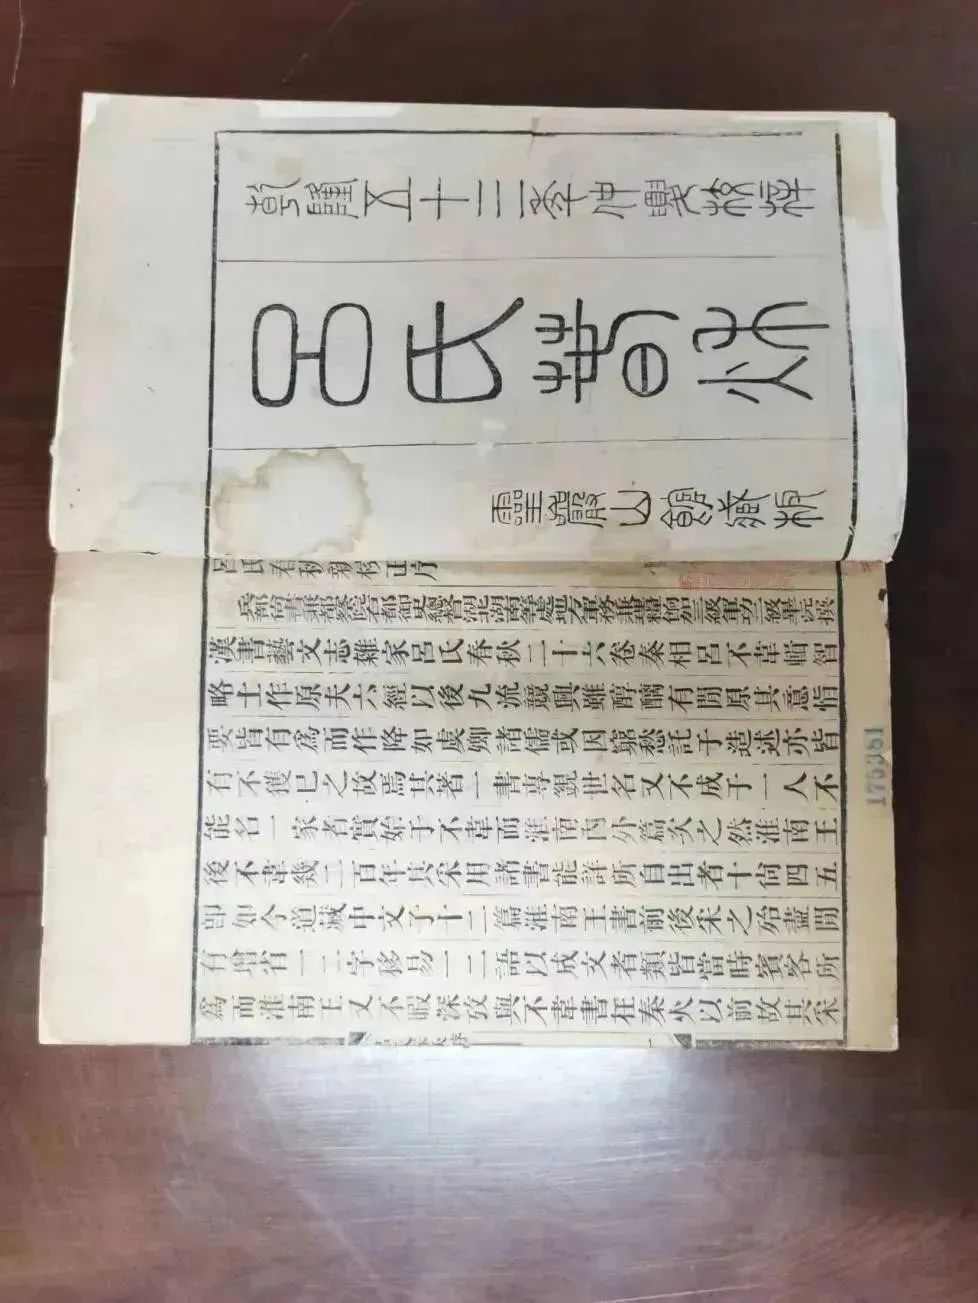 乾隆五十三年仲夏校梓
呂氏春秋
靈巖山館藏版
呂氏春秋新校正序
兵部尚書兼都察院右都御史總督湖北湖南等處地方軍務兼理糧餉加三級軍功一級畢沅撰
漢書藝文志雜家呂氏春秋二十六卷秦相呂不韋輯智
略士作原夫六經以後九流競興雖醇醨有閒原其意恉
要皆有為而作降如虞卿諸儒或因窮愁託于造述亦皆
有不獲已之故焉其著一書專覬世名又不成于一人不
能名一家者實始于不韋而淮南內外篇次之然淮南王
後不韋幾二百年其采用諸書能詳所自出者十尚四五
即如今道藏中文子十二篇淮南王書前後采之殆盡閒
有增省一二字移易一二語以成文者類皆當時賓客所
為而淮南王又不暇深攷與不韋書在秦火以前故其采
175381